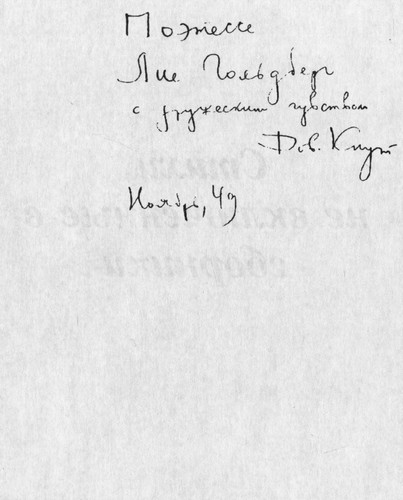 Поэтессе
Лие Гольдберг
с дружеским чувством
Дов. Кнут
Ноябрь, 49
Стихи,
не включенные в
сборники